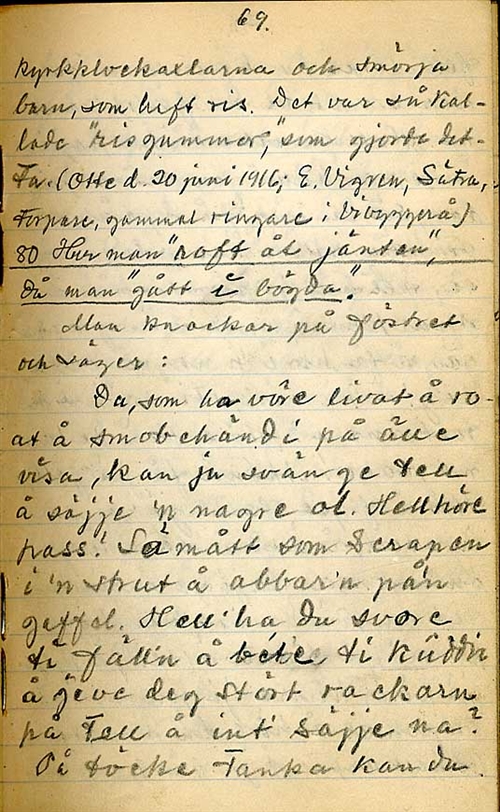 69.
kyrkklockaxlarna och smörja
barn, som haft ris. Det var så kal-
lade "risgummor," som gjorde det-
ta. (Otte d. 20 juni 1916; E. Vigren, Sätra,
Torpare, gammal ringare i Vibyggerå)
80 Hur man "roft åt jänten",
då man "gått i böyda".
Man knackar på föstret
och säger:
Du, som ha vöre livat å ro-
at å smobehändi på äue
visa, kan ju svänge tell
å säjje 'n nagre ol. Hell höre
pass! Så mått som Scrapen
i 'n strut å abbar'n på'n
gaffel. Hell' ha du svore
ti fäll'n å bete ti küddin
å jeve deg stört rackarn
på tell å int' säjje na?
På töcke tanka kan du